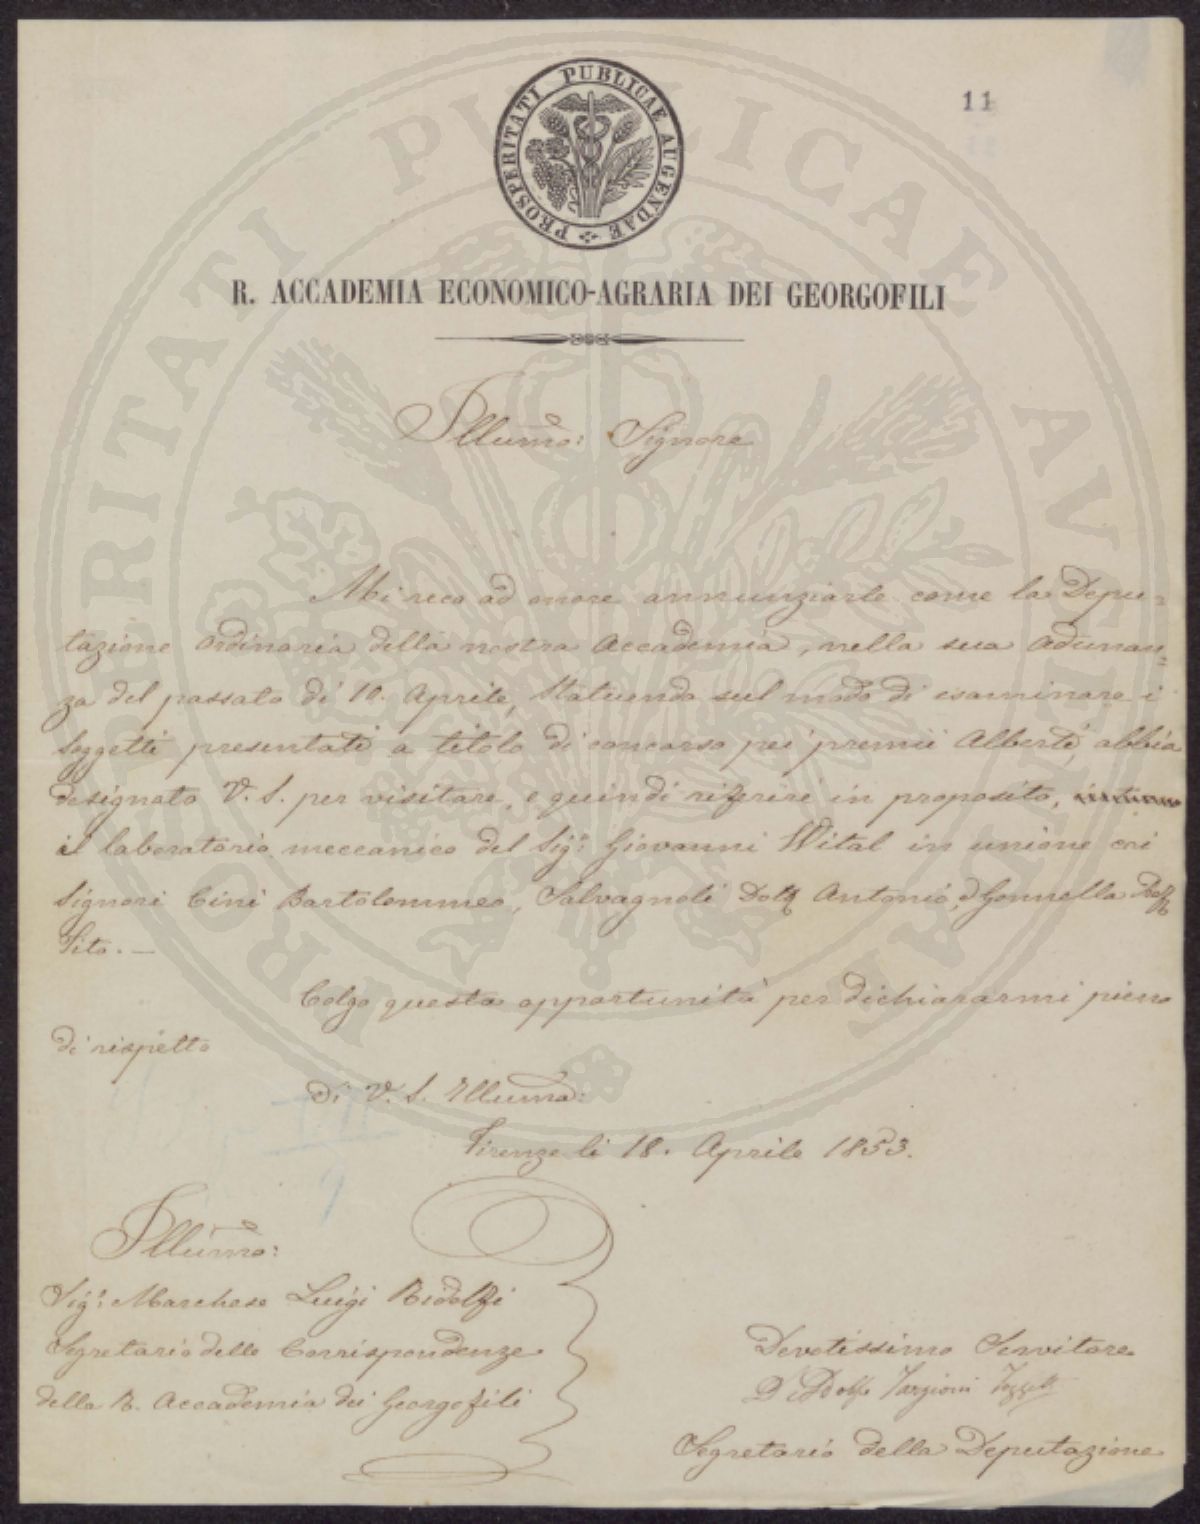 PROSPERITATI PUBLICAE AUGENDAE
11
R. ACCADEMIA ECONOMICO-AGRARIA DEI GEORGOFILI
Illumo: Signore
Mi reco ad onore annunziarle come la Depu=
tazione ordinaria della nostra Accademia, nella sua adunan=
za del passato dì 10. Aprile, statuendo sul modo di esaminare i
soggetti presentati a titolo di concorso pei premii Alberti, abbia
designato V. S. per visitare, e quindi riferire in proposito,
il laboratorio meccanico del Sigr: Giovanni Wital in unione coi
Signori Cini Bartolommeo, Salvagnoli Dott Antonio, e Gonnella Proff
Tito. —
Colgo questa opportunità per dichiararmi pieno
di rispetto
Di V. S. Illuma:
Firenze li 18. Aprile 1853.
Illumo:
Sigr: Marchese Luigi Ridolfi
Segretario delle Corrispondenze
della R. Accademia dei Georgofili
Devotissimo Servitore
D Adolfo Targioni Tozzetti
Segretario della Deputazione